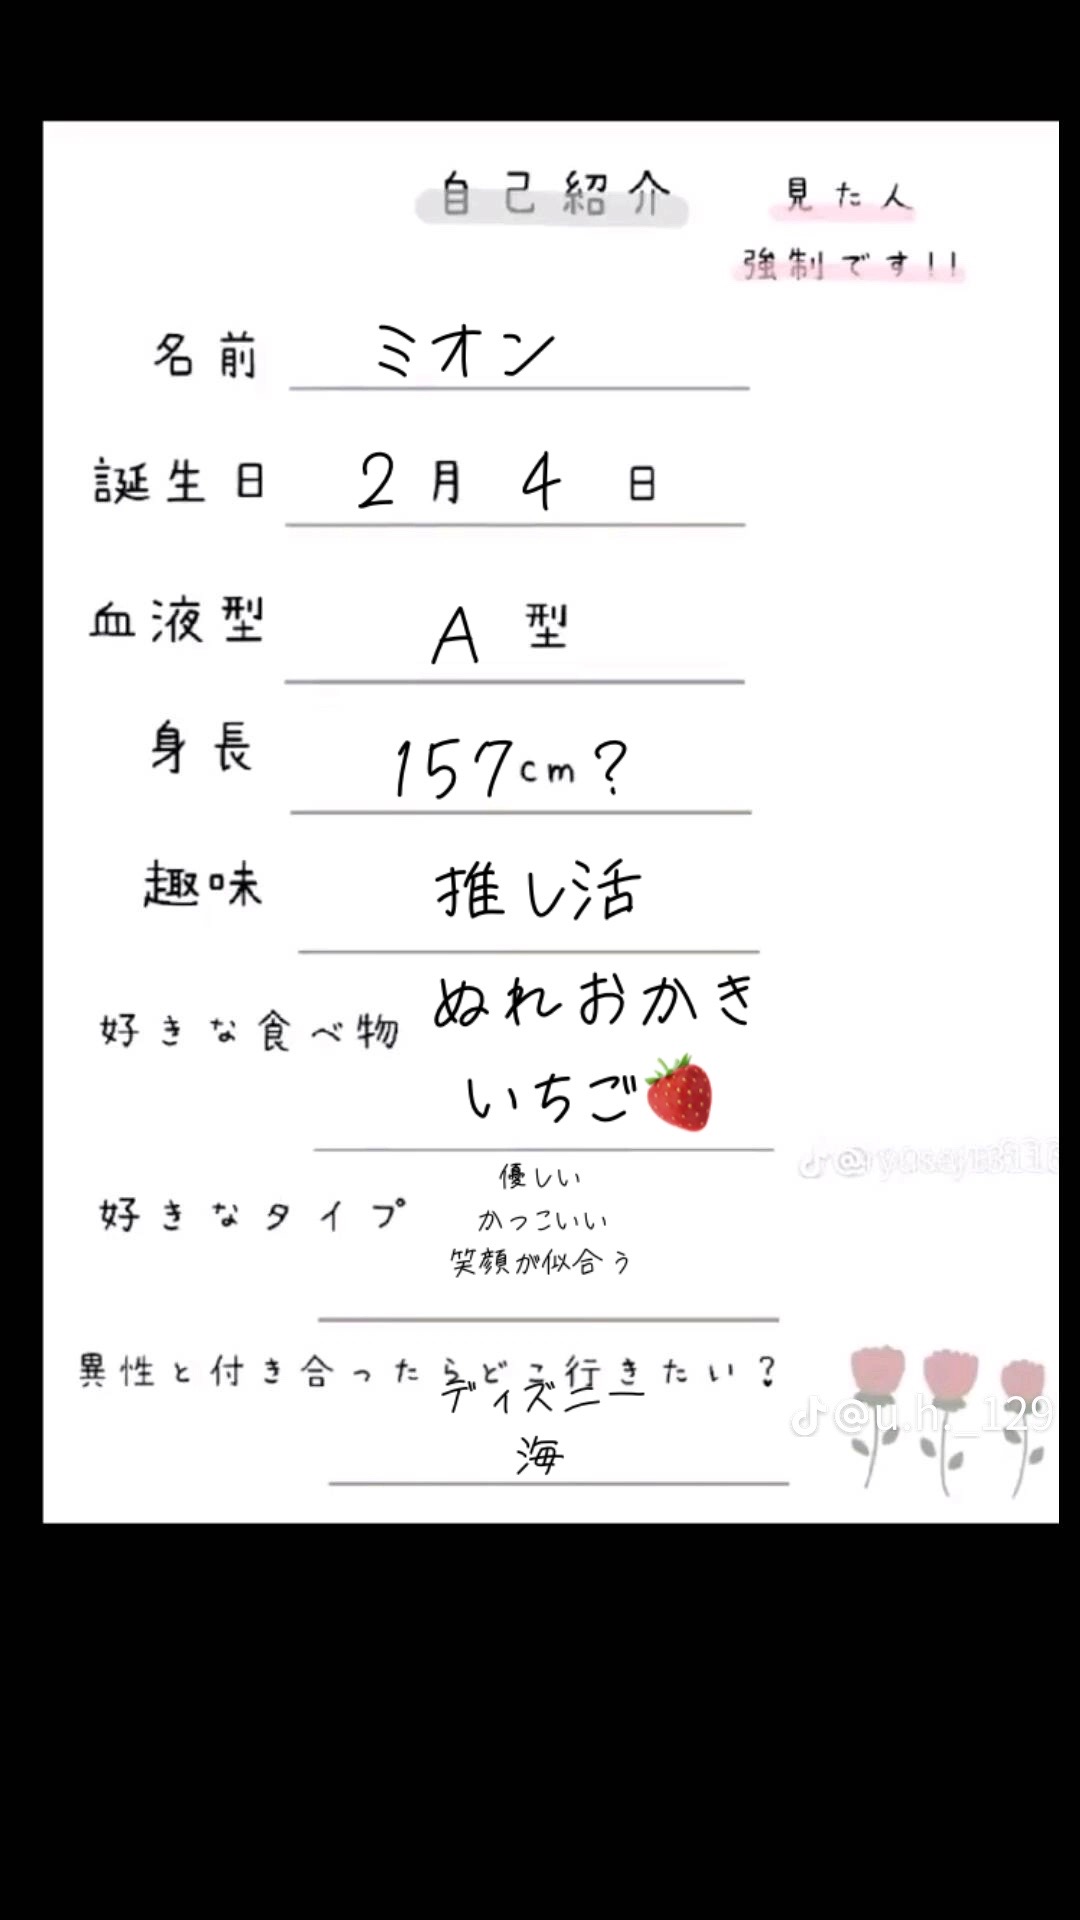 自己紹介
見た人
強制です!!
名前 ミオン
誕生日 2月4日
血液型 A型
身長 157cm?
趣味 推し活
好きな食べ物 ぬれおかき
いちご🍓
好きなタイプ 優しい
かっこいい
笑顔が似合う
異性と付き合ったらどこ行きたい?
ディズニー
海
@u.h._129